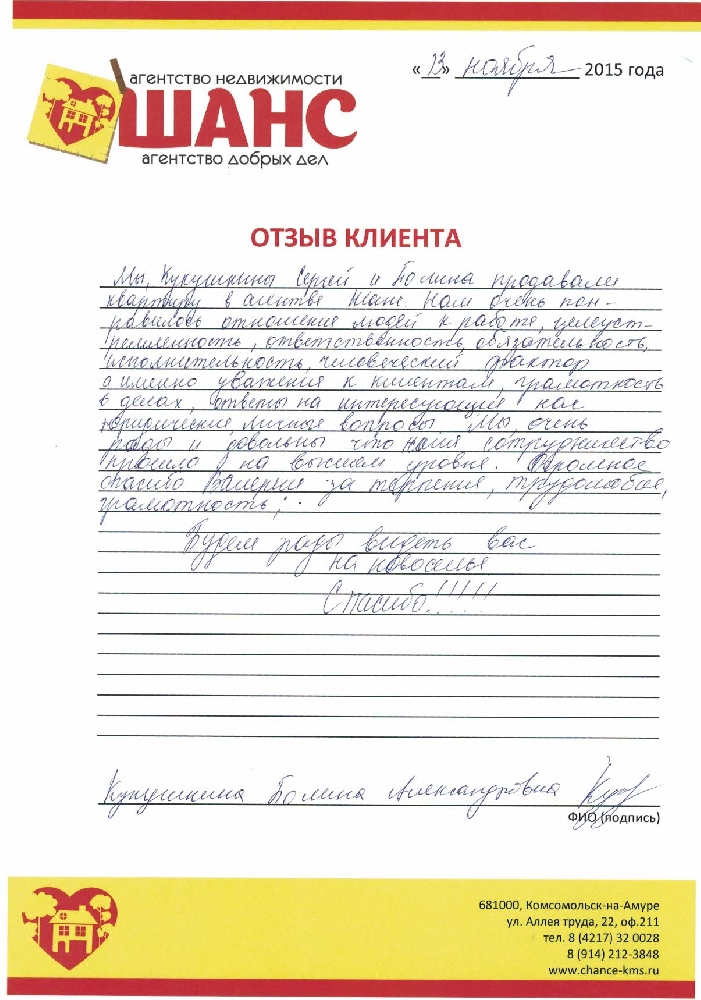 « 13 » ноября 2015 года
агентство недвижимости
ШАНС
агентство добрых дел
ОТЗЫВ КЛИЕНТА
Мы, Кукушкины Сергей и Полина продавали
квартиру в агентве Шанс. Нам очень пон-
равилось отношение людей к работе, целеуст-
ремленность, ответственность, обязательность,
исполнительность, человеческий фактор
а именно уважения к клиентам, грамотность
в делах, ответы на интересующие нас
юридические, личные вопросы. Мы, очень
рады и довольны что наше сотрудничество
прошло на высшем уровне. Огромное
спасибо Валерии за терпения, трудолюбие,
грамотность;.
Будем рады видеть вас
на новоселье
Спасибо!!!!!!
Кукушкина Полина Александровна
ФИО (подпись)
681000, Комсомольск-на-Амуре
ул. Аллея труда, 22, оф.211
тел. 8 (4217) 32 0028
8 (914) 212-3848
www.chance-kms.ru